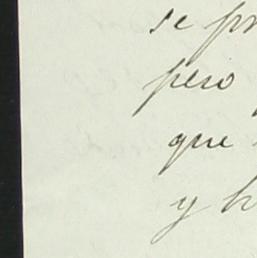 se pr
pero
que
y h